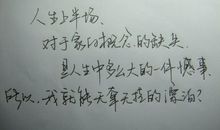 人生上半场、
对于家的概念的缺失
是人生中多么大的一件憾事
所以，我就能无牵无挂的漂泊？